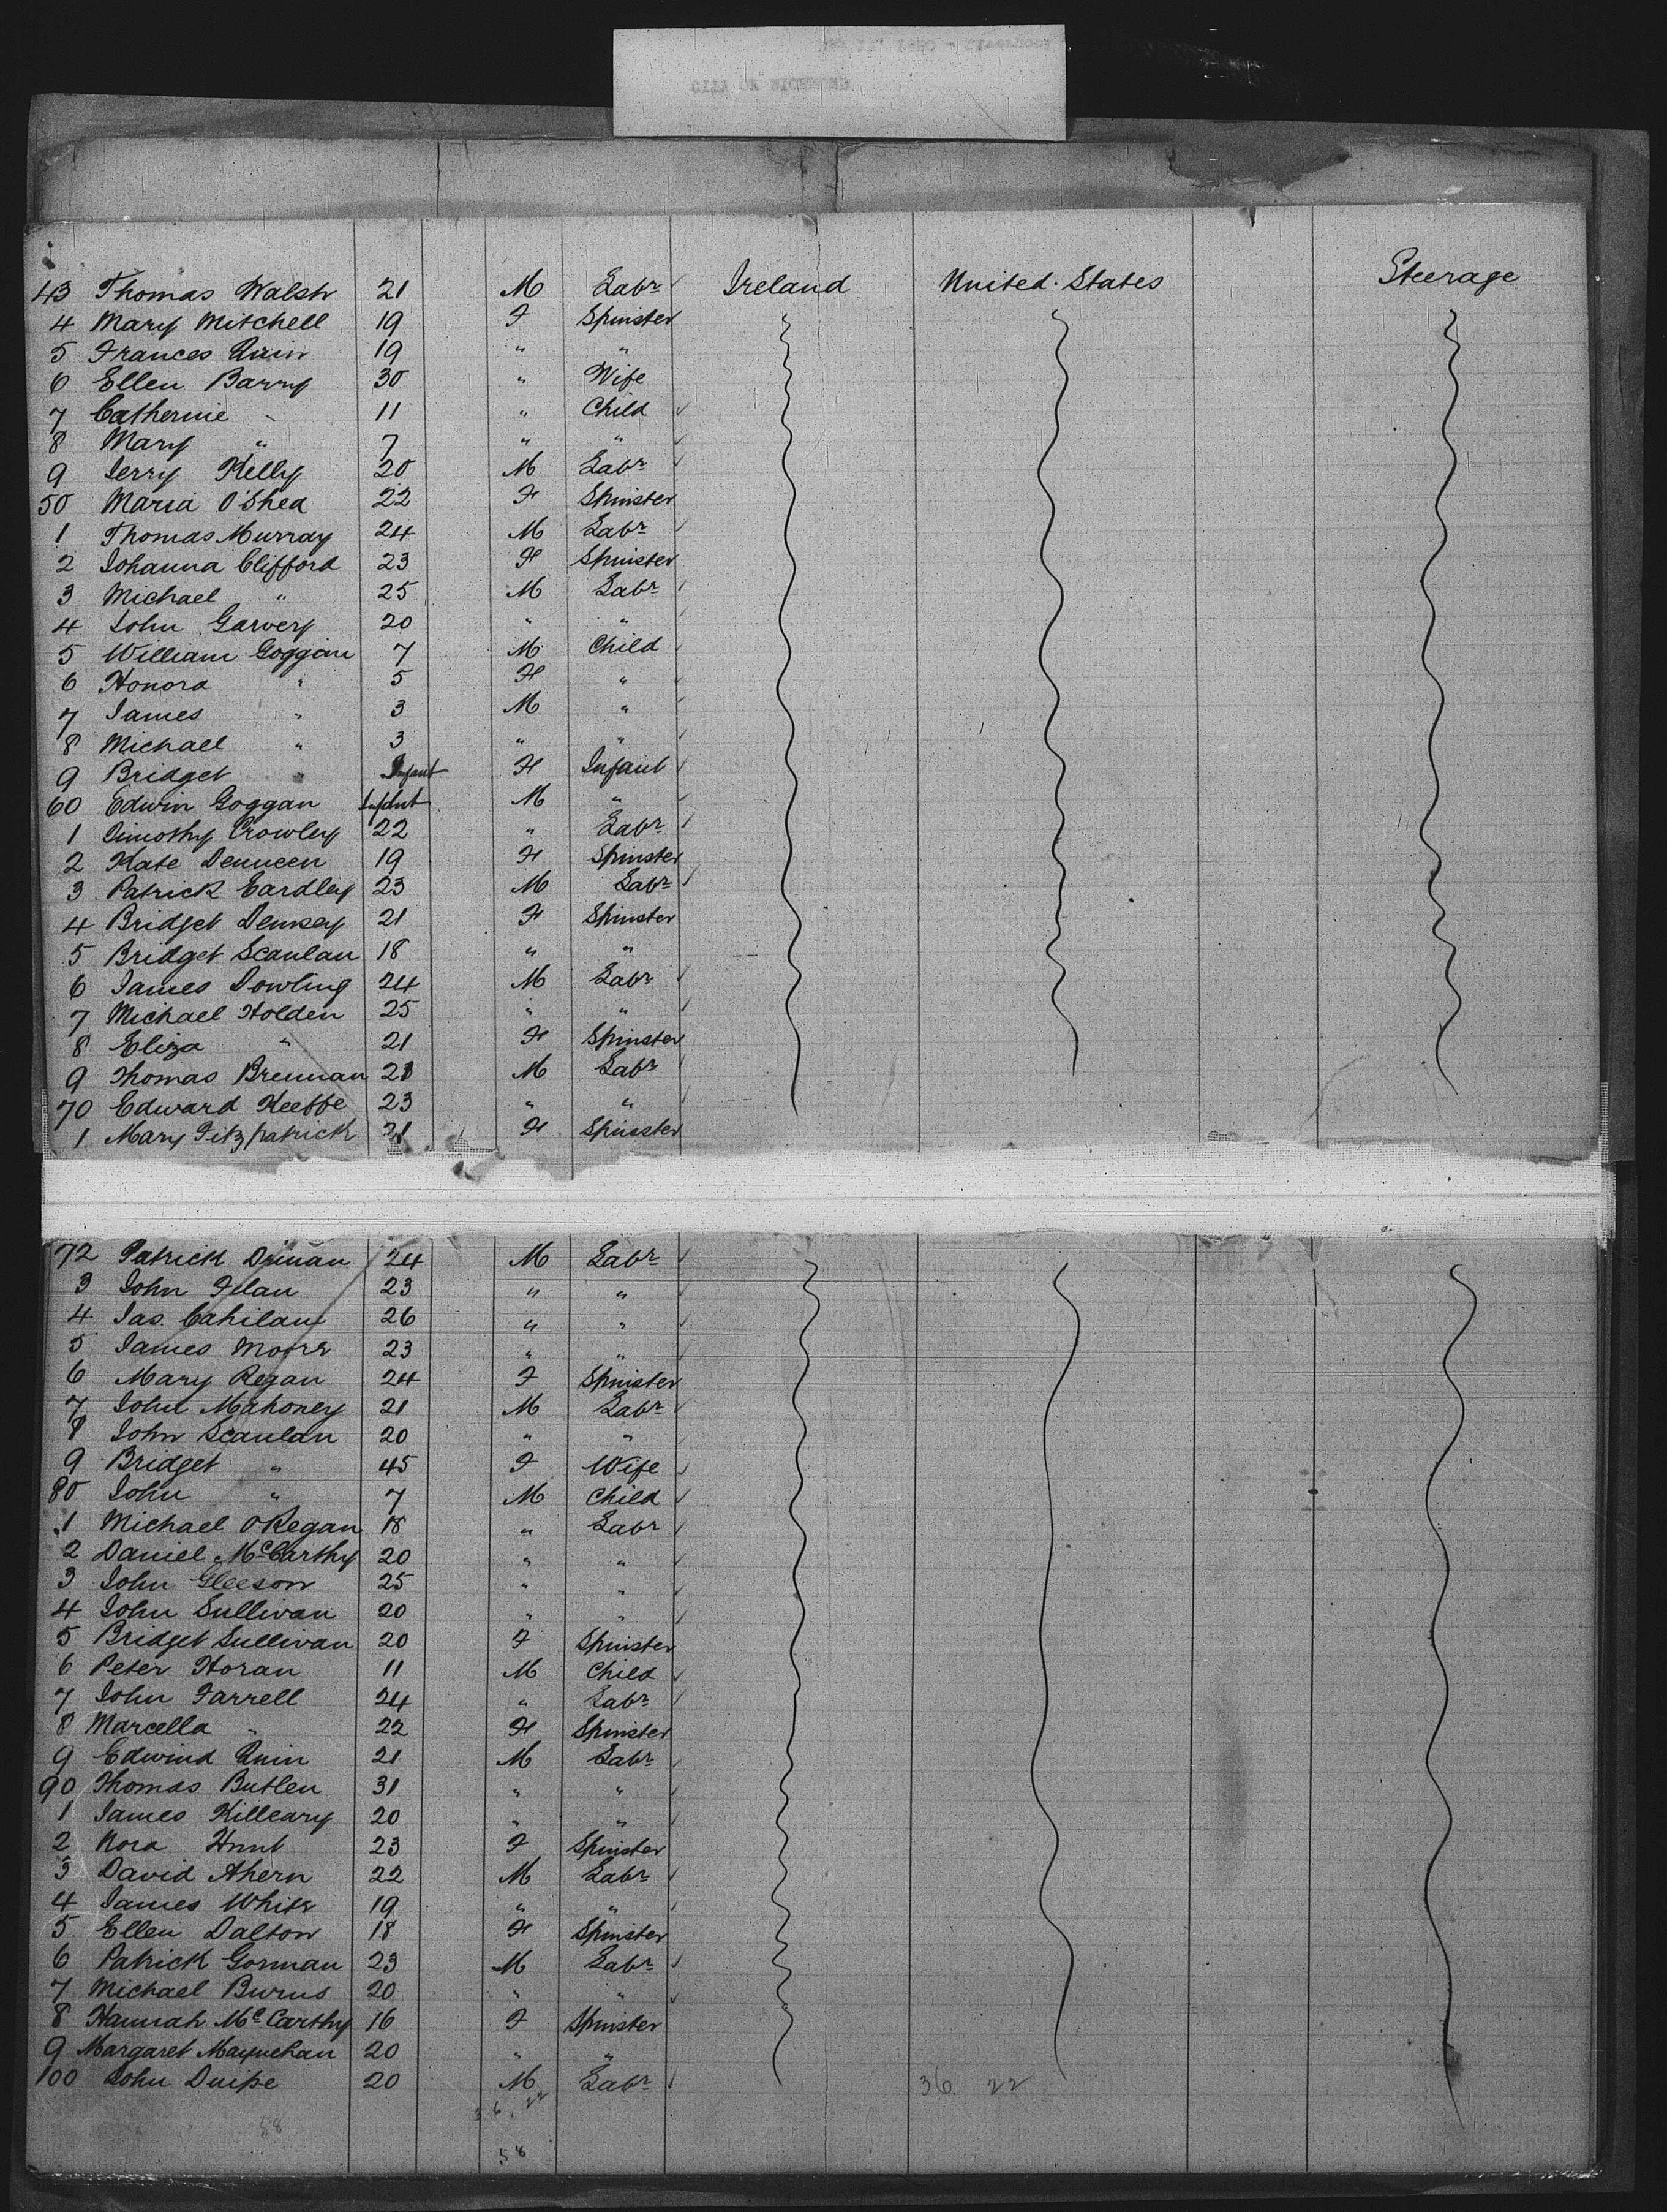 43 Thomas Walsh 21 M Labr Ireland United States Steerage
4 Mary Mitchell 19 F Spinster
5 Frances Quin 19 " "
6 Ellen Barry 30 " Wife
7 Catherine " 11 " Child
8 Mary " 7 " "
9 Jerry Kelly 20 M Labr
50 Maria O'Shea 22 F Spinster
1 Thomas Murray 24 M Labr
2 Johanna Clifford 23 F Spinster
3 Michael " 25 M Labr
4 John Garvey 20 " "
5 William Goggan 7 M Child
6 Honora " 5 F "
7 James " 3 M "
8 Michael " 3 " "
9 Bridget " Infant F Infant
60 Edwin Goggan Infant M "
1 Timothy Crowley 22 " Labr
2 Kate Denneen 19 F Spinster
3 Patrick Eardley 23 M Labr
4 Bridget Demsey 21 F Spinster
5 Bridget Scanlan 18 " "
6 James Dowling 24 M Labr
7 Michael Holden 25 " "
8 Eliza " 21 F Spinster
9 Thomas Brennan M Labr
70 Edward Keeffe 23 " "
1 Mary Fitzpatrick 21 F Spinster
72 Patrick 24 M Labr
3 John Felan 23 " "
4 Jas. Cahilan 26 " "
5 James Moore 23 " "
6 Mary Regan 24 F Spinster
7 John Mahoney 21 M Labr
8 John Scanlan 20 " "
9 Bridget " 45 F Wife
80 John " 7 M Child
1 Michael O Regan 18 " Labr
2 Daniel McCarthy 20 " "
3 John Gleeson 25 " "
4 John Sullivan 20 " "
5 Bridget Sullivan 20 F Spinster
6 Peter Horan 11 M Child
7 John Farrell 24 " Labr
8 Marcella " 22 F Spinster
9 Edwind Quin 21 M Labr
90 Thomas Butler 31 " "
1 James Killeary 20 " "
2 Nora Hunt 23 F Spinster
3 David Ahern 22 M Labr
4 James White 19 " "
5 Ellen Dalton 18 F Spinster
6 Patrick Gorman 23 M Labr
7 Michael Burns 20 " "
8 Hannah McCarthy 16 F Spinster
9 Margaret 20 " "
100 John 20 M Labr
36. 22
36. 22
58
58